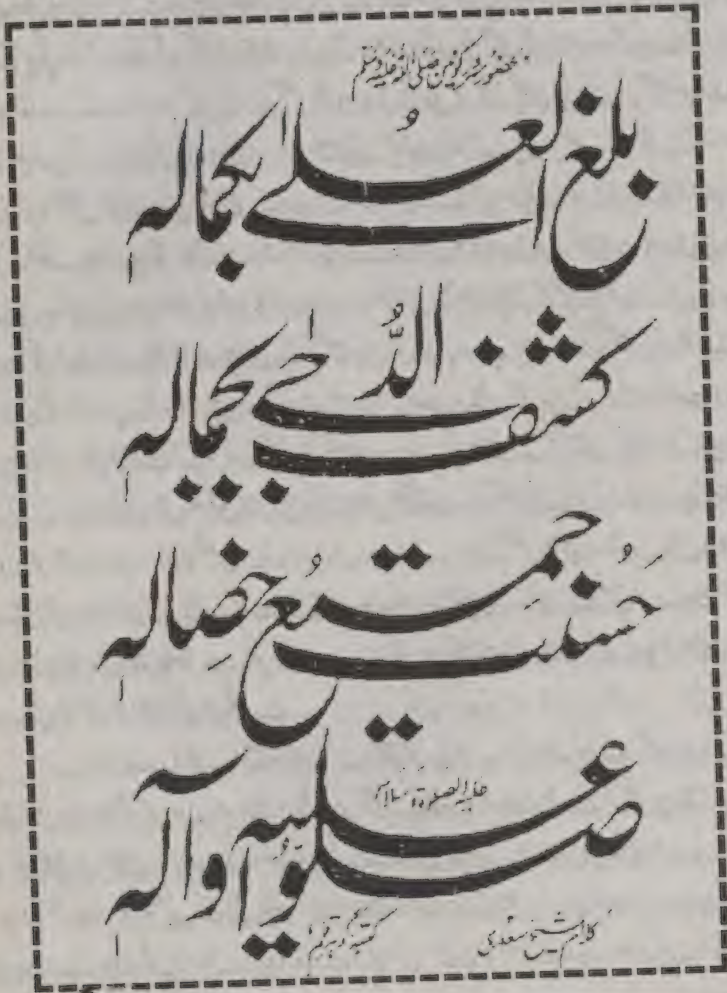 بحضور سرور کونین صلی اللہ علیہ وسلم
بلغ العُلےٰ بکمالہٖ
کشف الدُّجےٰ بجمالہٖ
حَسُنت جمِیعُ خِصالہٖ
صلّوا علیہ وآلہٖ
علیہ الصلوٰۃ والسلام
کلام شیخ سعدی